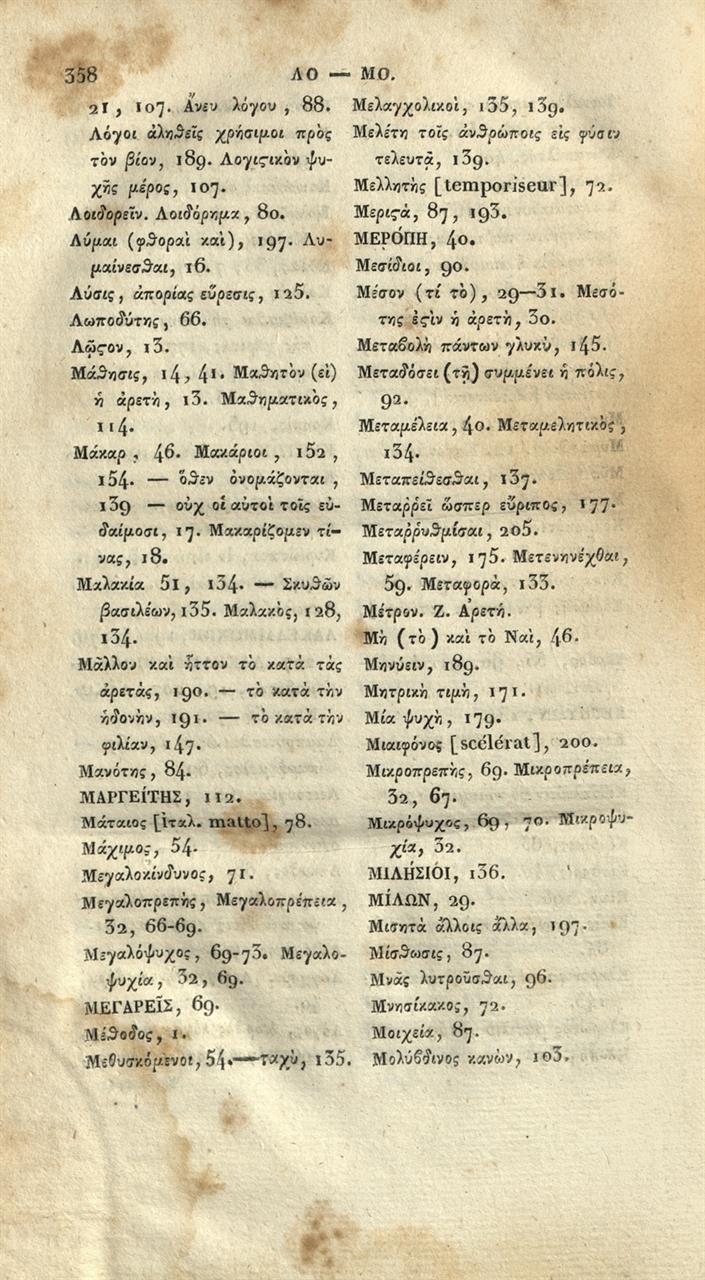 358
ΛΟ — ΜΟ.
21, 107. Ἄνευ λόγου, 88.
Λόγοι ἀληθεῖς χρήσιμοι πρὸς
τὸν βίον, 189. Λογιϛικὸν ψυ-
χῆς μέρος, 107.
Λοιδορεῖν. Λοιδόρημα, 80.
Λύμαι (φθοραὶ καὶ), 197. Λυ-
μαίνεσθαι, 16.
Λύσις, ἀπορίας εὕρεσις, 125.
Λωποδύτης, 66.
Λῷϛον, 13.
Μάθησις, 14, 41. Μαθητὸν (εἰ)
ἡ ἀρετὴ, 13. Μαθηματικὸς,
114.
Μάκαρ, 46. Μακάριοι, 152,
154. — ὅθεν ὀνομάζονται,
139 — οὐχ οἱ αὐτοὶ τοῖς εὐ-
δαίμοσι, 17. Μακαρίζομεν τί-
νας, 18.
Μαλακία 51, 134. — Σκυθῶν
βασιλέων, 135. Μαλακὸς, 128,
134.
Μᾶλλον καὶ ἧττον τὸ κατὰ τὰς
ἀρετάς, 190. — τὸ κατὰ τὴν
ἡδονὴν, 191. — τὸ κατὰ τὴν
φιλίαν, 147.
Μανότης, 84.
ΜΑΡΓΕΊΤΗΣ, 112.
Μάταιος [ἰταλ. matto], 78.
Μάχιμος, 54.
Μεγαλοκίνδυνος, 71.
Μεγαλοπρεπὴς, Μεγαλοπρέπεια,
32, 66-69.
Μεγαλόψυχος, 69-73. Μεγαλο-
ψυχία, 32, 69.
ΜΕΓΑΡΕῖΣ, 69.
Μέθοδος, 1.
Μεθυσκόμενοι, 54.—ταχὺ, 135.
Μελαγχολικοὶ, 135, 139.
Μελέτη τοῖς ἀνθρώποις εἰς φύσιν
τελευτᾷ, 139.
Μελλητὴς [temporiseur], 72.
Μεριϛὰ, 87, 193.
ΜΕΡΌΠΗ, 40.
Μεσίδιοι, 90.
Μέσον (τί τὸ), 29—31. Μεσό-
της ἐϛὶν ἡ ἀρετὴ, 30.
Μεταβολὴ πάντων γλυκὺ, 145.
Μεταδόσει (τῇ) συμμένει ἡ πόλις,
92.
Μεταμέλεια, 40. Μεταμελητικὸς,
134.
Μεταπείθεσθαι, 137.
Μεταῤῥεῖ ὥσπερ εὔριπος, 177.
Μεταῤῥυθμίσαι, 205.
Μεταφέρειν, 175. Μετενηνέχθαι,
59. Μεταφορὰ, 133.
Μέτρον. Ζ. Ἀρετή.
Μὴ (τὸ) καὶ τὸ Ναὶ, 46.
Μηνύειν, 189.
Μητρικὴ τιμὴ, 171.
Μία ψυχὴ, 179.
Μιαιφόνος [scélérat], 200.
Μικροπρεπὴς, 69. Μικροπρέπεια,
32, 67.
Μικρόψυχος, 69, 70. Μικροψυ-
χία, 32.
ΜΙΛΉΣΙΟΙ, 136.
ΜΊΛΩΝ, 29.
Μισητὰ ἄλλοις ἄλλα, 197.
Μίσθωσις, 87.
Μνᾶς λυτροῦσθαι, 96.
Μνησίκακος, 72.
Μοιχεία, 87.
Μολύβδινος κανὼν, 103.